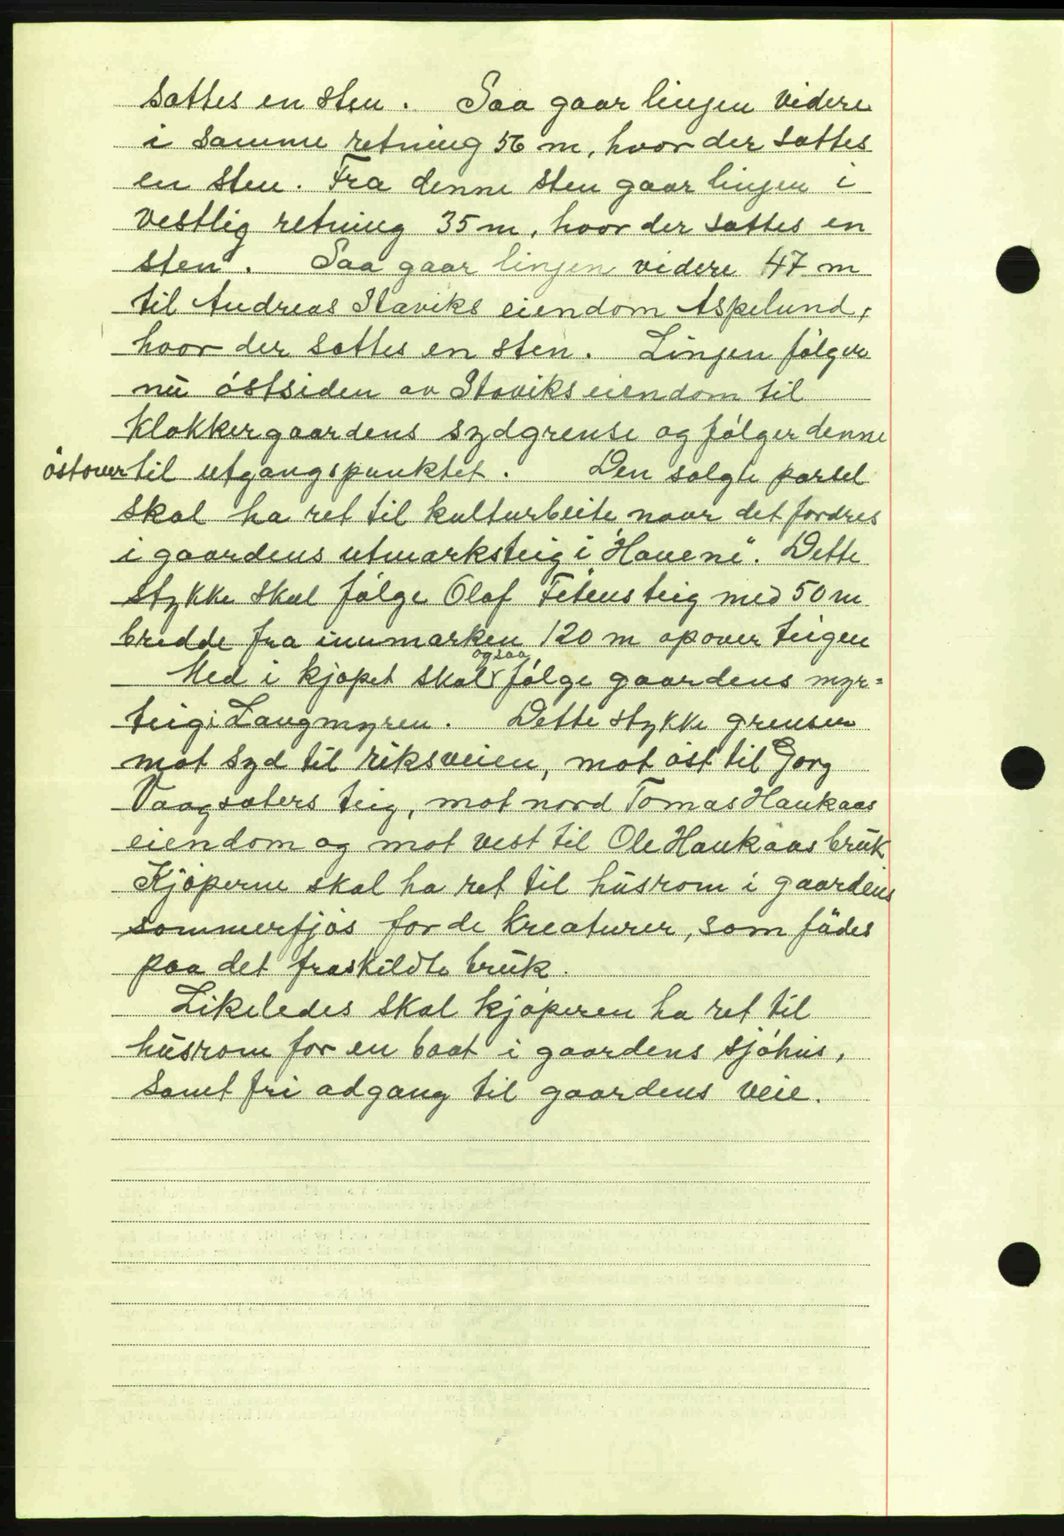 sattes en sten. Saa gaar linjen videre
i samme retning 56 m, hvor der sattes
en sten. Fra denne sten gaar linjen i
vestlig retning 35 m, hvor der sattes en
sten. Saa gaar linjen videre 47 m
til Andreas Staviks eiendom Aspelund,
hvor der sattes en sten. Linjen følger
nu østsiden av Staviks eiendom til
Klokkergaardens sydgrense og følger denne
østover til utgangspunktet. Den solgte parsel
skal ha ret til kulturbeite, naar det fordres
i gaardens utmarksteig i "Hauene". Dette
stykke skal følge Olaf Fetens teig med 50 m
bredde fra innmarken 120 m opover teigen
Med i kjøpet skal ogsaa følge gaardens myr=
teig i Langmyren. Dette stykke grenser
mot syd til riksveien, mot øst til Gorg
Vaagsæters teig, mot nord Tomas Haukaas
eiendom og mot vest til Ole Haukaas bruk
Kjøperne skal ha ret til husrom i gaardens
sommerfjøs for de kreaturer, som fødes
paa det fraskildte bruk.
Likeledes skal kjøperen ha ret til
husrom for en baat i gaardens sjøhus,
samt fri adgang til gaardens veie.